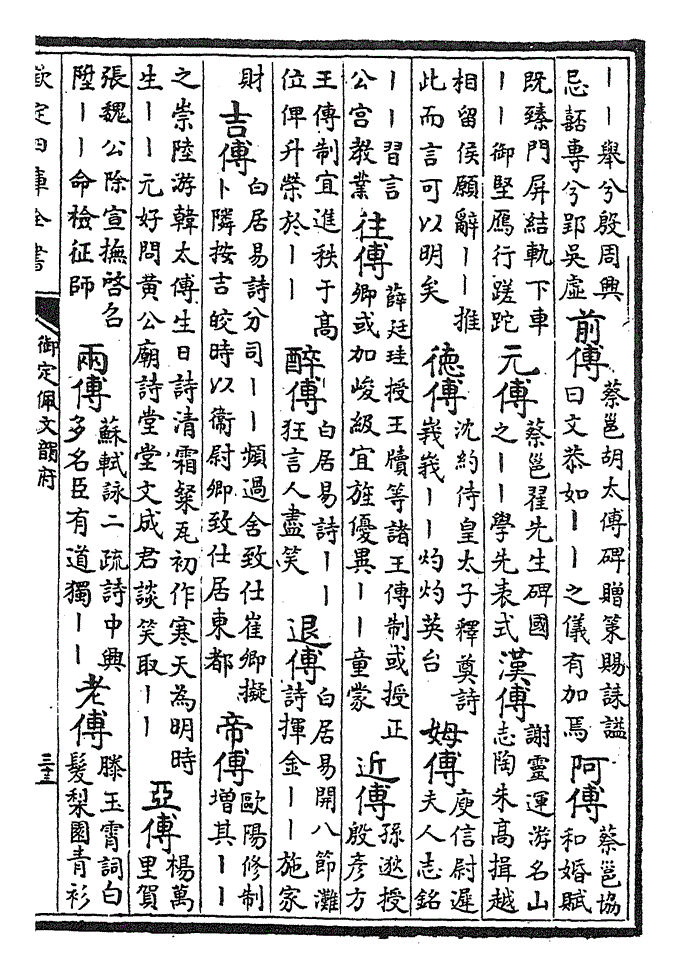 丨丨舉兮殷周興
忌嚭專兮郢吳虛
前傅
蔡邕胡太傅碑贈策賜誄謚
曰文恭如丨丨之儀有加焉
阿傅
蔡邕協
和婚賦
既臻門屏結軌下車
丨丨御堅鴈行蹉跎
元傅
蔡邕翟先生碑國
之丨丨學先表式
漢傅
謝靈運游名山
志陶朱高揖越
相留侯願辭丨丨推
此而言可以明矣
德傅
沈約侍皇太子釋奠詩
峩峩丨丨灼灼英台
姆傅
庾信尉遲
夫人志銘
丨丨習言
公宫教業
往傅
薛廷珪授王牘等諸王傅制或授正
卿或加峻級宜旌優異丨丨童蒙
近傅
孫逖授
殷彦方
王傅制宜進秩于高
位俾升榮於丨丨
醉傅
白居易詩丨丨
狂言人盡笑
退傅
白居易開八節灘
詩揮金丨丨施家
財
吉傅
白居易詩分司丨丨頻過舍致仕崔卿擬
卜隣按吉皎時以衞尉卿致仕居東都
帝傅
歐陽修制
增其丨丨
之崇陸游韓太傅生日詩清霜粲瓦初作寒天為明時
生丨丨元好問黄公廟詩堂堂文成君談笑取丨丨
亞傅
楊萬
里賀
張魏公除宣撫啓名
陞丨丨命檢征師
兩傅
蘇軾詠二疏詩中興
多名臣有道獨丨丨
老傅
滕玉霄詞白
髮梨園青衫
欽定四庫全書
御定佩文韻府
三十三